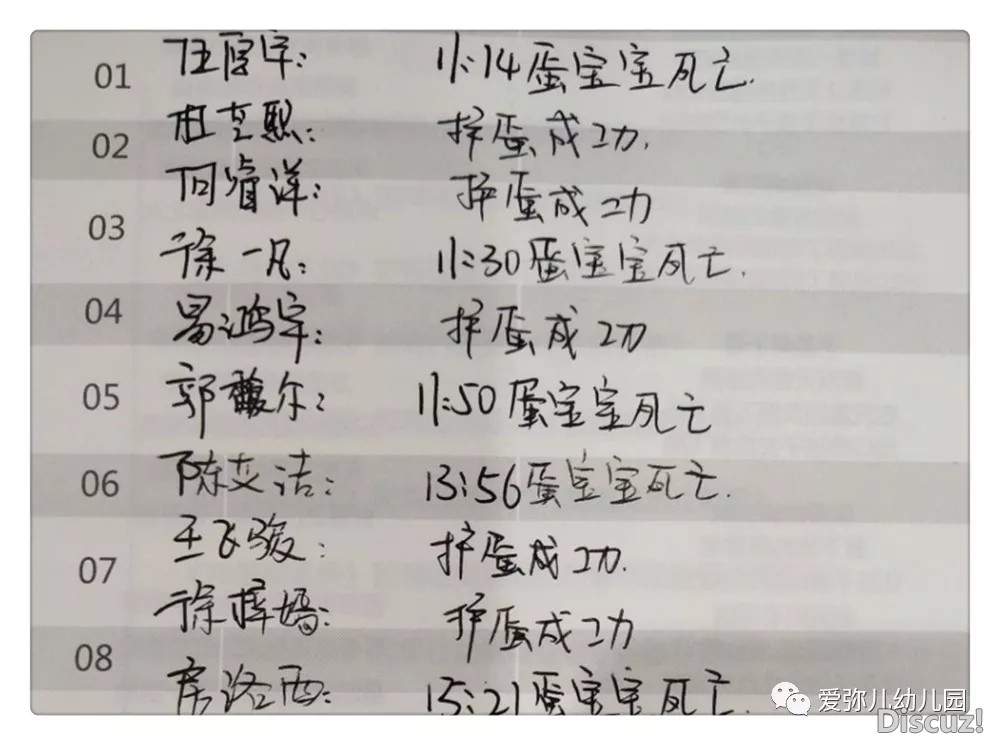 01 任厚宇: 11:14蛋宝宝死亡.
02 杜立熙: 护蛋成功.
何睿洋: 护蛋成功
03 徐一凡: 11:30蛋宝宝死亡.
04 易鸿宇: 护蛋成功
05 郭馥尔: 11:50蛋宝宝死亡
06 陈艾洁: 13:56蛋宝宝死亡.
王飞骏: 护蛋成功.
07
徐梓嫣: 护蛋成功
08
房洛西: 15:21蛋宝宝死亡.
爱弥儿幼儿园
Discuz!